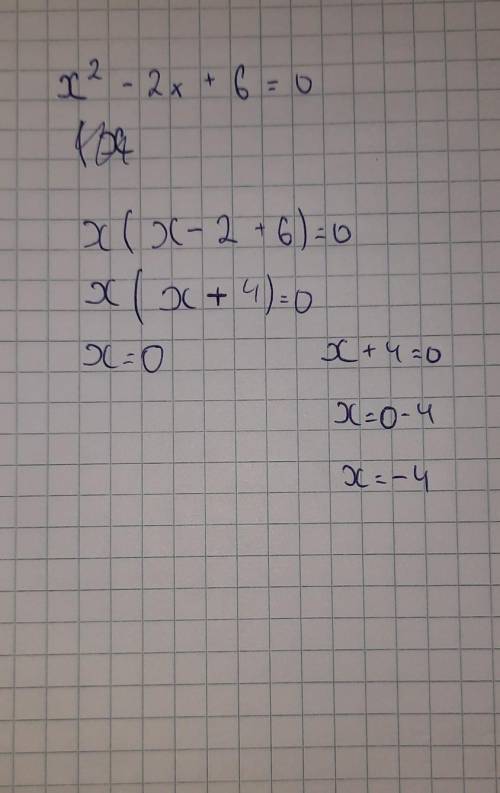 x² - 2x + 6 = 0
x(x - 2 + 6) = 0
x(x + 4) = 0
x = 0 x + 4 = 0
x = 0 - 4
x = -4